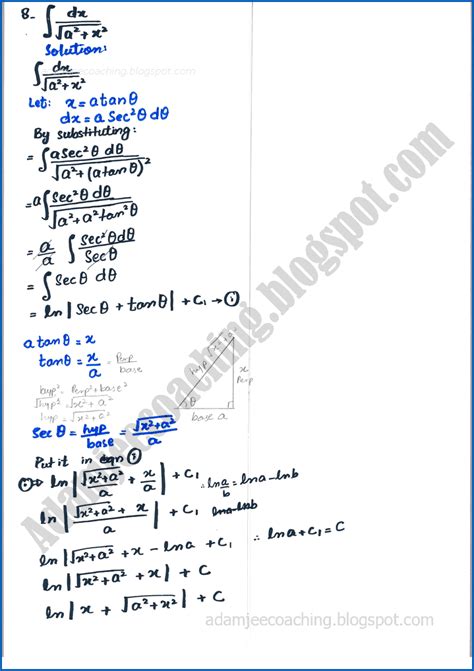 8- ∫ dx / √a² + x²
adamjeecoaching.blogspot.com
Solution:
∫ dx / √a² + x²
Let: x = a tanθ
dx = a Sec²θ dθ
By substituting:
= ∫ a Sec²θ dθ / √a² + (a tanθ)²
= a ∫ Sec²θ dθ / √a² + a² tan²θ
= a/a ∫ Sec²θ dθ / Secθ
= ∫ Sec θ dθ
= ln | Sec θ + tan θ | + C₁ → ①
a tanθ = x
tanθ = x/a = Perp/base
hyp² = Perp² + base²
√hyp² = √x² + a²
hyp = √x² + a²
hyp √x² + a²
x
Perp
θ
base a
Sec θ = hyp/base = √x² + a² / a
Put it in eqn ①
① ⇒ ln | √x² + a² / a + x/a | + C₁ ∴ ln a/b = ln a - ln b
ln | √x² + a² + x / a | + C₁
ln | √x² + a² + x - ln a + C₁ ∴ ln a + C₁ = C
ln | √x² + a² + x | + C
ln | x + √a² + x² | + C
adamjeecoaching.blogspot.com
Adamjeecoaching.blogspot.com